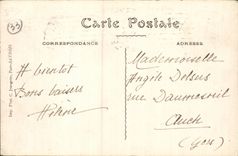 33
Carte Postale
CORRESPONDANCE
ADRESSES
A bientot
Bons baisers
Hélène
Mademoiselle
Angèle Delsus
rue Daumesnil
Auch
(Gers)